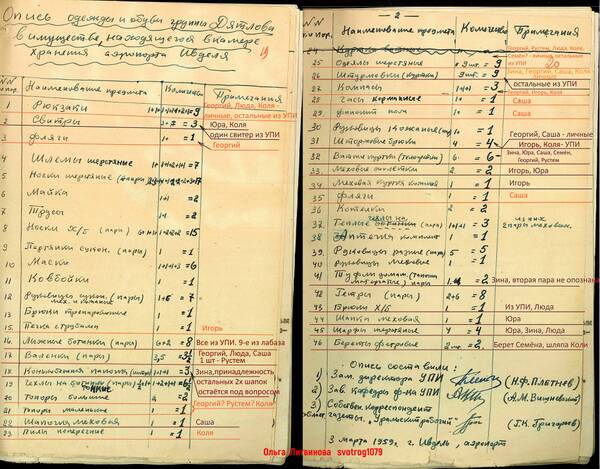 Опись одежды и обуви группы Дятлова
в имуществе, находящегося в камере
хранения аэропорта Ивделя
19
NN
Наименование предмета Количество Примечания
1 Рюкзаки = 9 Георгий, Люда, Коля -
личные, остальные из УПИ
2 Свитры = 3 Юра, Коля
один свитер из УПИ
3 фляги 1+ = 1 Георгий
4 Шлемы шерстяные = 7
5 Носки шерстяные (пары) = 7
6 Майка 1+1 = 2
7 Трусы 1+1 = 2
8 Носки Х/Б (пары) = 15
9 Портянки сукон. = 1
10 Маски = 6
11 Ковбойки = 1
12 Рукавицы сукон. (пары) = 7
13 Брюки тренировочные = 1
15 Печка с трубами = 1 Игорь
16 Лыжные ботинки (пары) 6+2 = 8 Все из УПИ. 9-е из лабаза
17 Валенки (пары) Георгий, Люда, Саша
1 шт - Рустем
18 = 1 Зина, принадлежность
19 Чехлы на ботинки тонкие (пары) остальных 2х шапок
остаётся под вопросом
20 Топоры большие = 2
21 Топоры маленькие = 1 Георгий? Рустем? Коля
22 Шапочка меховая = 1 Саша
23 Пилы поперечные = 1 Коля
- 2 -
NN
Наименование предмета Количество Примечания
24 Георгий, Рустем, Люда, Коля,
Семён? - личные, остальные
из УПИ
25 Одеяла шерстяные 9 шт. = 9 20
26 Штурмовки (куртка) 9 шт. = 9 Зина, Георгий, Саша, Коля
остальные из УПИ
27 Компасы 1+1 = 3 Георгий, Игорь, Коля
28 Часы карманные 1 = 1 Саша
29 финский нож 1 = 1 Саша
30 Рукавицы кожаные 1 = 1 Георгий, Саша - личные
31 Штормовые брюки 4 = 4 Игорь, Коля- УПИ
32 Ватные куртки (телогрейки) 6 = 6 Зина, Юра, Саша, Семён,
Георгий, Рустем
33 Меховые жилетки 2 = 2 Игорь, Юра
34 Меховая куртка кожаная 1 = 1 Игорь
35 фляги 1 = 1 Саша
36 Котелки 2 = 2
37 Теплые чехлы на ботинки (пара) 1+1+1 = 3 из них
2 пары меховых.
38 Аптечка комплект 1 = 1
39. Рукавицы разные (пар) 5 = 5
40 Рукавицы меховые 1 = 1
41 Туфли домаш. (тапочки) (пар) = 2 Зина, вторая пара не опознана
42 Гетры (пары) 2+6 = 8
43 Брюки Х/Б 1 = 1 Из УПИ, Люда
44 Шапка меховая 1 = 1 Юра
45 Шарфы шерстяные 4 = 4 Юра, Зина, Люда
46 Береты фетровые 2 = 2 Берет Семёна, шляпа Коли
Опись составили:
1) Зам. директора УПИ (Н.Ф. Плетнев)
2) Зав. кафедры ф-ка УПИ (А.М. Вишневский)
3) Собствен. корреспондент
област. газеты, "Уральский рабочий" (Г.К. Григорьев)
3 марта 1959г. г. Ивдель, аэропорт
Ольга Литвинова svotrog1079